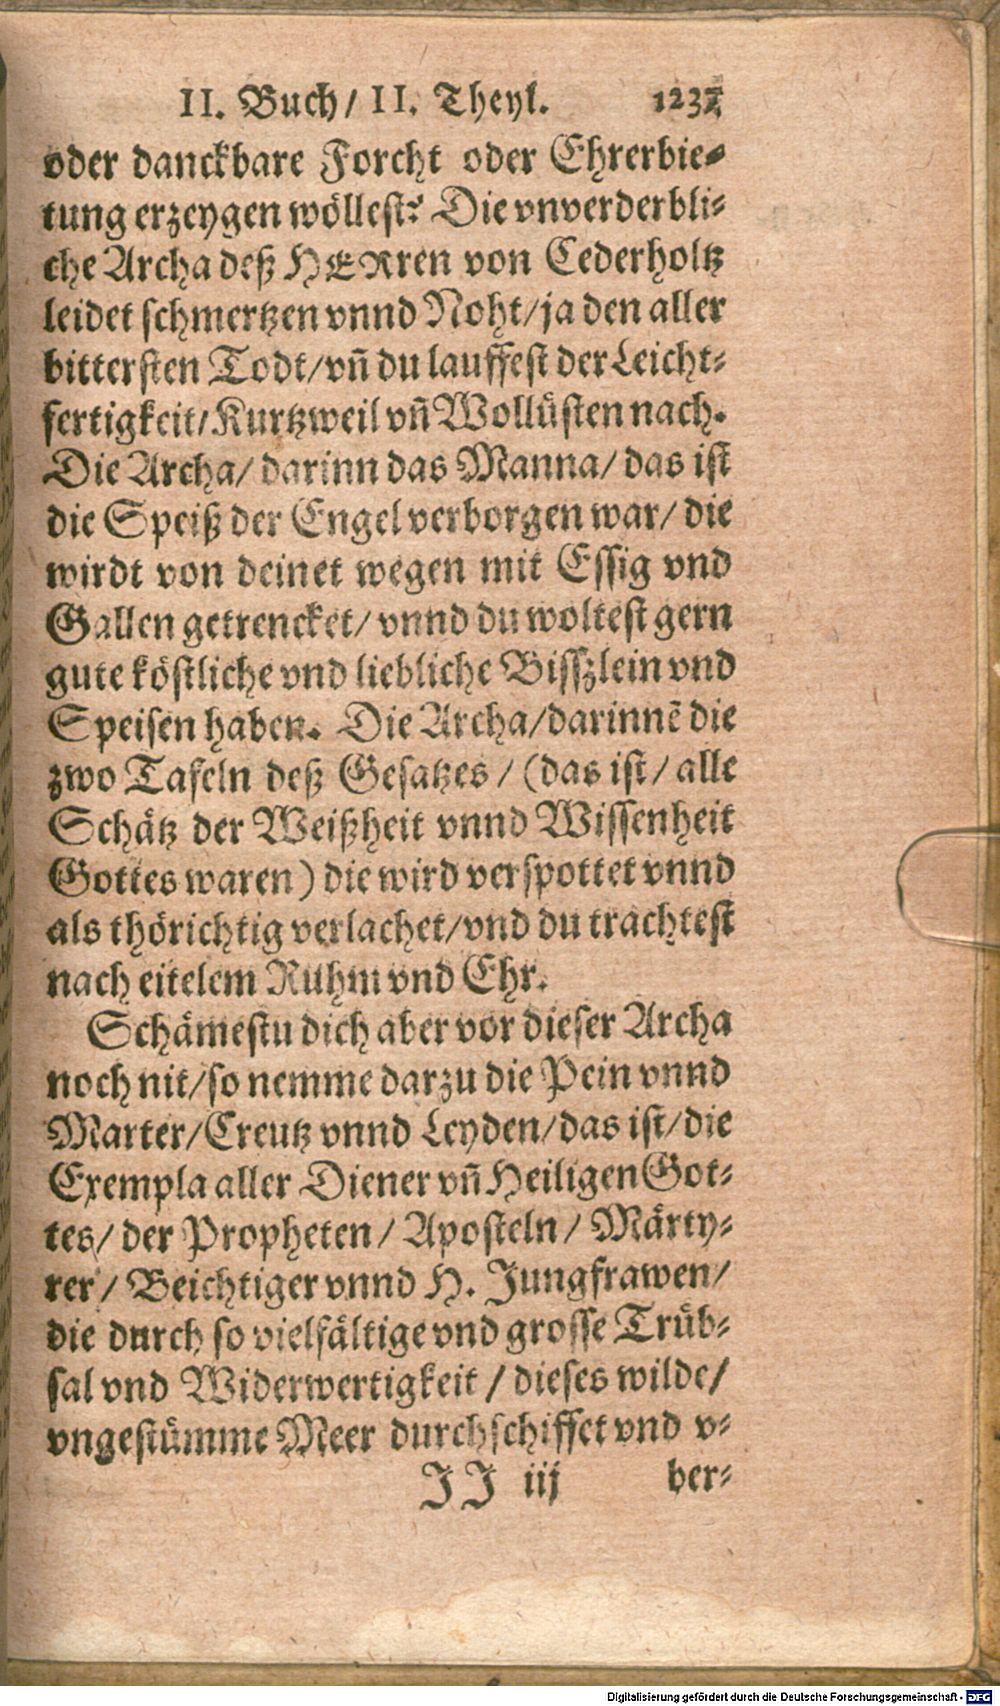 II. Buch/ II. Theyl.
oder danckbare Forcht oder Ehrerbie⸗
tung erzeygen wöllest? Die vnverderbli⸗
che Archa deß HERren von Cederholtz
leidet schmertzen vnnd Noht/ja den aller
bittersten Todt/vn̄ du lauffest der Leicht⸗
fertigkeit/Kurtzweil vn̄ Wollüsten nach.
Die Archa/ darinn das Manna/ das ist
die Speiß der Engel verborgen war/ die
wirdt von deinet wegen mit Essig vnd
Gallen getrencket/ vnnd du woltest gern
gute köstliche vnd liebliche Bisszlein vnd
Speisen haben. Die Archa/darinnē die
zwo Tafeln deß Gesatzes/ (das ist/ alle
Schätz der Weißheit vnnd Wissenheit
Gottes waren) die wird verspottet vnnd
als thörichtig verlachet/vnd du trachtest
nach eitelem Ruhm vnd Ehr.
Schämestu dich aber vor dieser Archa
noch nit/so nemme darzu die Pein vnnd
Marter/Creutz vnnd Leyden/das ist/die
Exempla aller Diener vn̄ Heiligen Got⸗
tes/ der Propheten/ Aposteln/ Märty⸗
rer/ Beichtiger vnnd H. Jungfrawen/
die durch so vielfältige vnd grosse Trüb⸗
sal vnd Widerwertigkeit/ dieses wilde/
vngestümme Meer durchschiffet vnd v⸗
JJ iij ber⸗
Digitalisierung gefördert durch die Deutsche Forschungsgemeinschaft - DFG